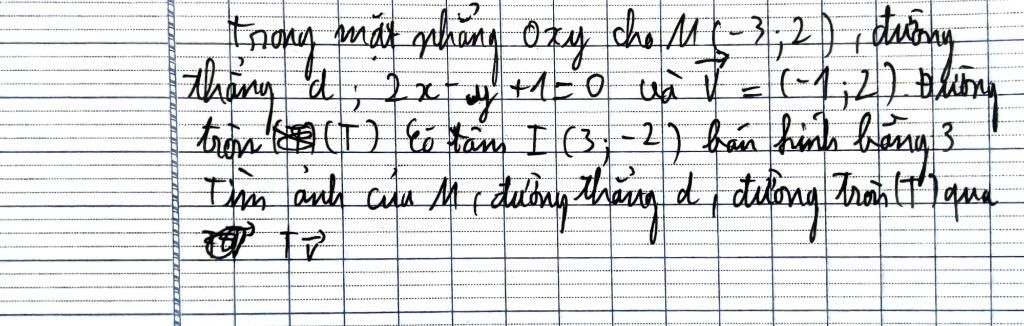 Trong mặt phẳng Oxy cho M(-3;2), đường
thẳng d: 2x-y+1=0 và \vec{V} = (-1;2). Đường
tròn (T) có tâm I (3;-2) bán kính bằng 3
Tìm ảnh của M, đường thẳng d, đường tròn (T) qua
T\vec{v}